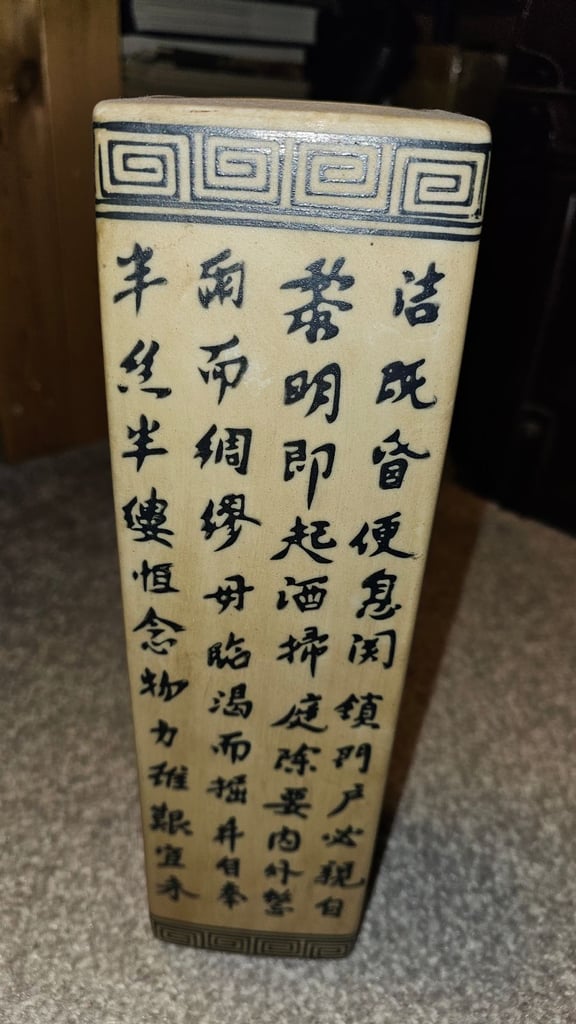 半丝半縷恒念物力維艱宜未
雨而綢繆毋臨渴而掘井自奉
黎明即起洒掃庭除要内外整
洁既昏便息関鎖門户必親自